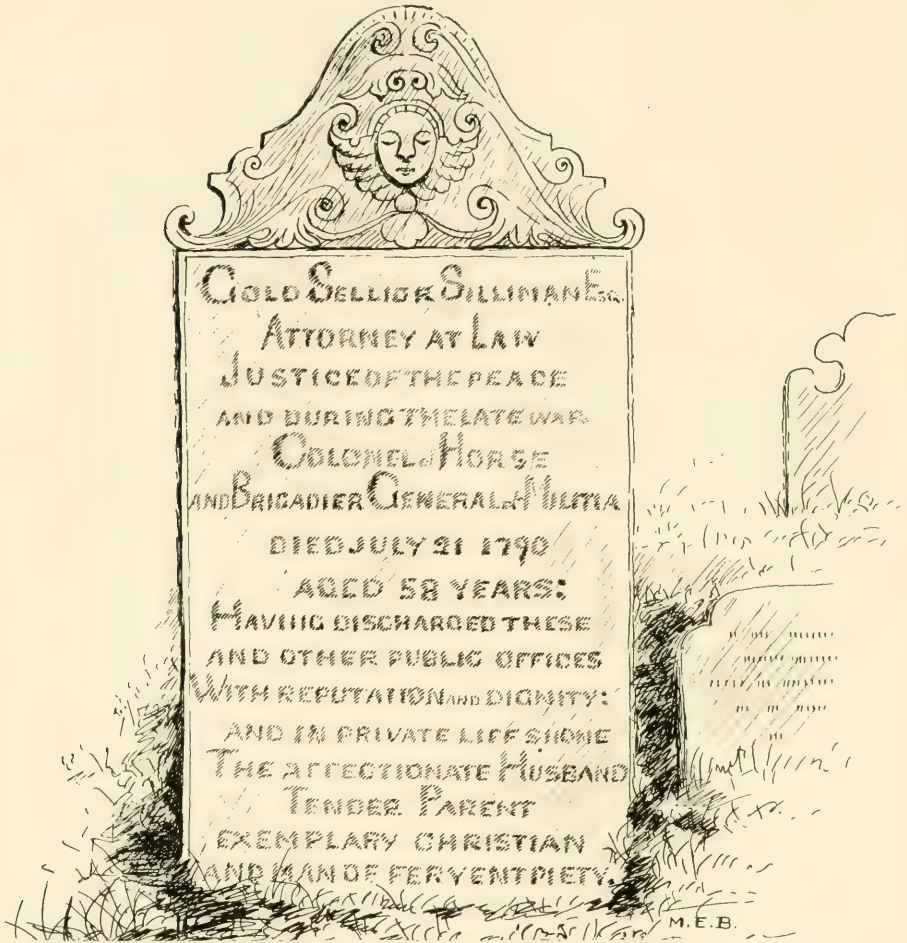 GOLD SELLICK SILLIMAN ESQ.
ATTORNEY AT LAW
JUSTICE OF THE PEACE
AND DURING THE LATE WAR
COLONEL of HORSE
AND BRIGADIER GENERAL of MILITIA
DIED JULY 21 1790
AGED 58 YEARS:
HAVING DISCHARGED THESE
AND OTHER PUBLIC OFFICES
WITH REPUTATION AND DIGNITY:
AND IN PRIVATE LIFE SHONE
THE AFFECTIONATE HUSBAND
TENDER PARENT
EXEMPLARY CHRISTIAN
AND MAN OF FERVENT PIETY.
M.E.B.